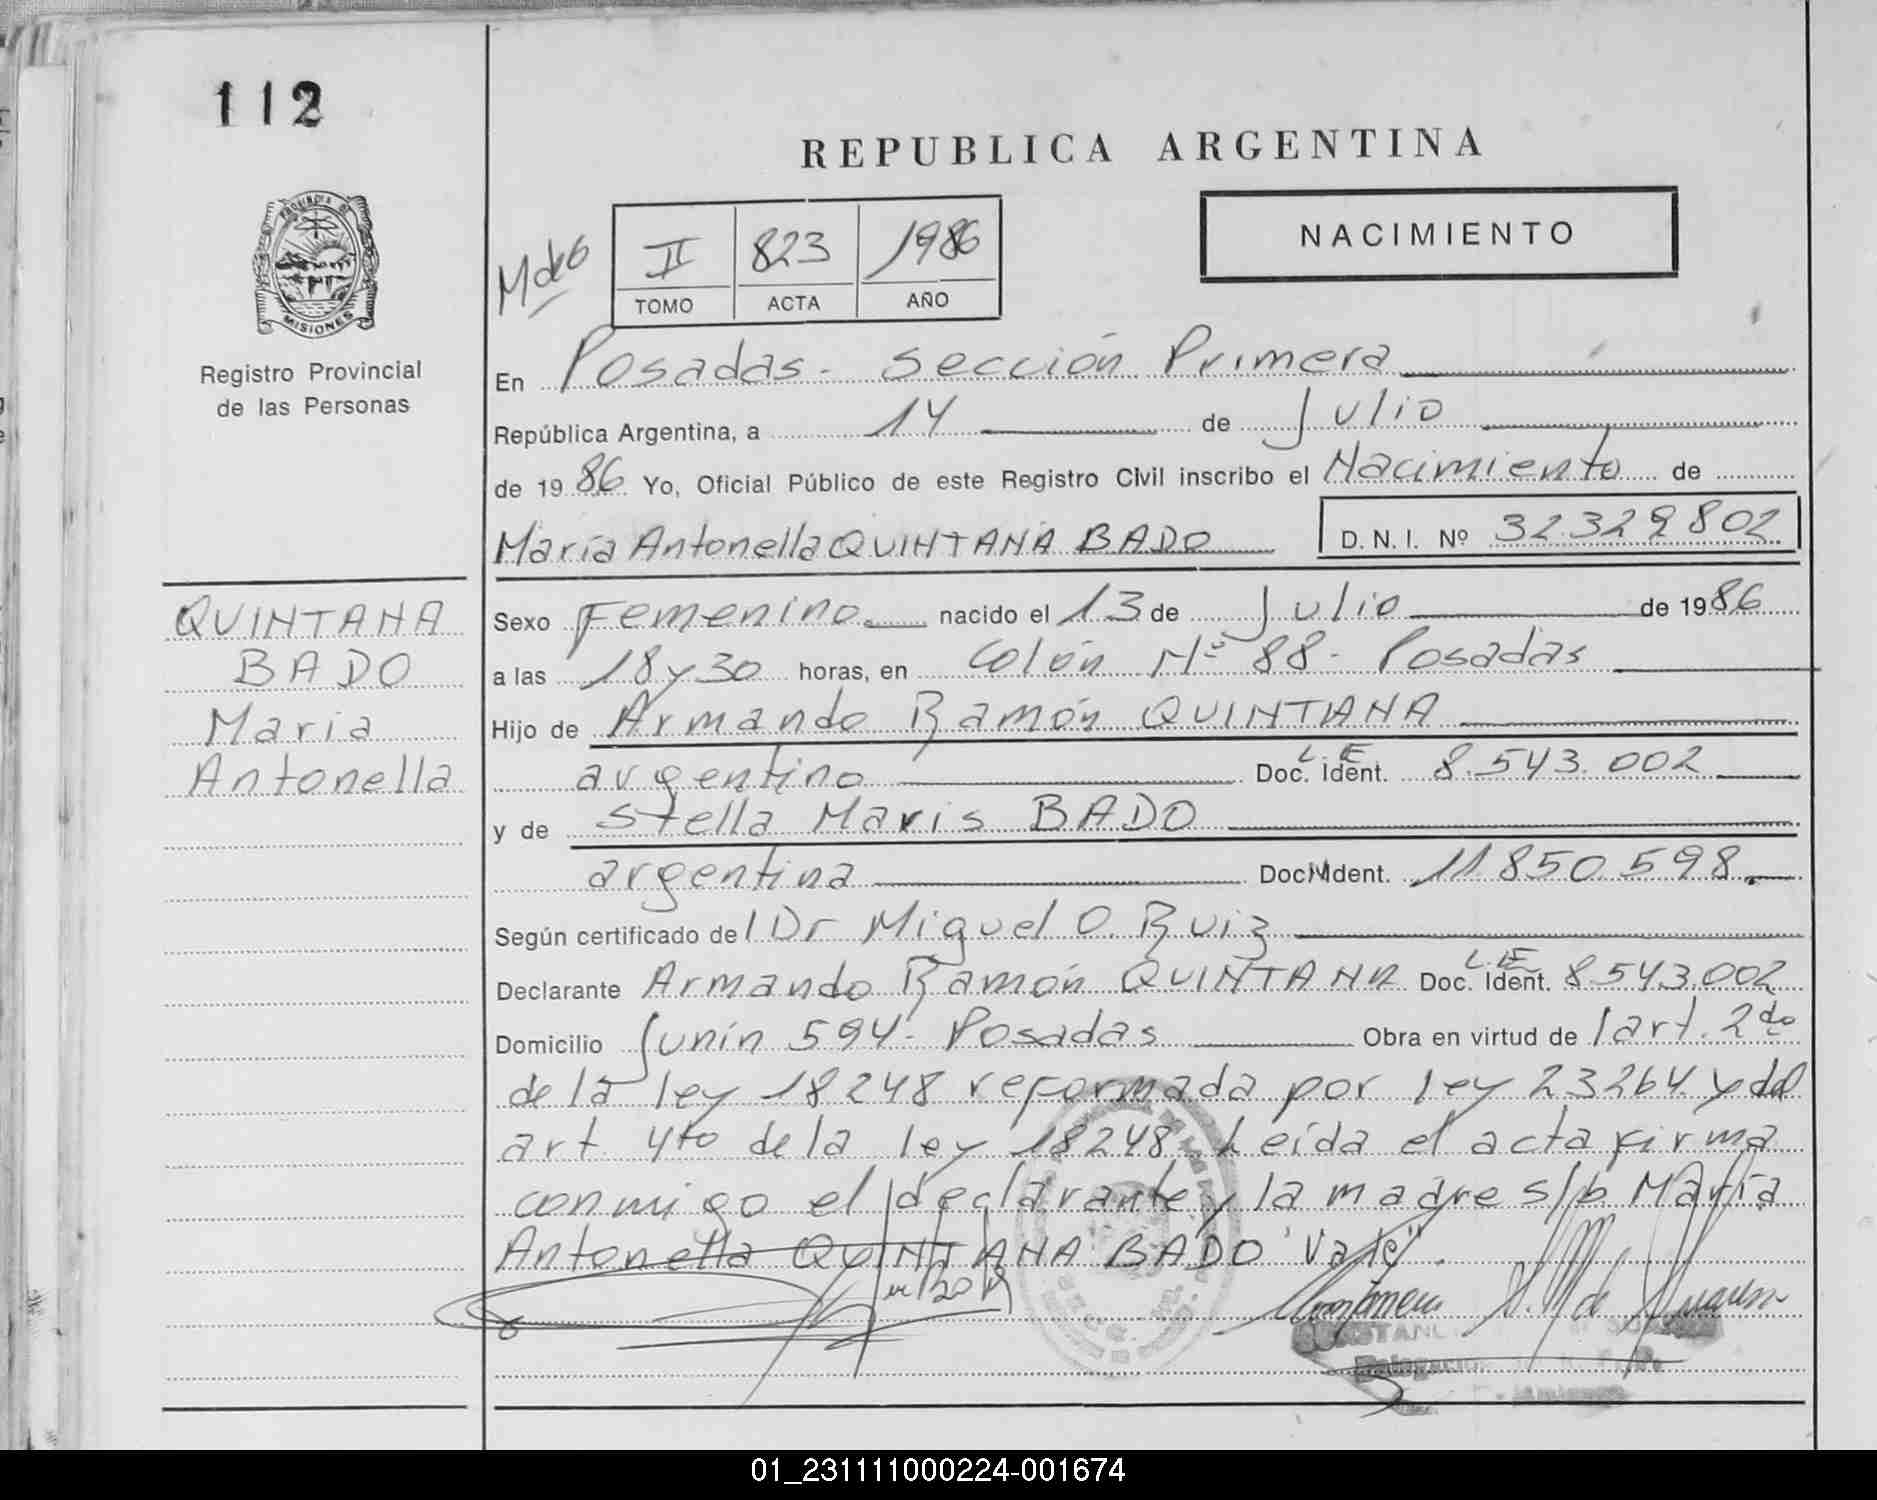 112
REPUBLICA ARGENTINA
NACIMIENTO
II 823 1986
TOMO ACTA AÑO
PROVINCIA DE
MISIONES
Registro Provincial
de las Personas
En Posadas - Sección Primera
República Argentina, a 14 de Julio
de 1986 Yo, Oficial Público de este Registro Civil inscribo el Nacimiento de
María Antonella QUINTANA BADO D. N. I. Nº 32.329.802
QUINTANA
BADO
María
Antonella
Sexo Femenino nacido el 13 de Julio de 1986
a las 18 y 30 horas, en Colón Nº 88 - Posadas
Hijo de Armando Ramón QUINTANA
argentino Doc. Ident. L.E 8.543.002
y de Stella Maris BADO
argentina Doc. Ident. 11.850.598.
Según certificado del Dr Miguel O. Ruiz
Declarante Armando Ramón QUINTANA Doc. Ident. L.E 8.543.002
Domicilio Junín 594 - Posadas Obra en virtud del art. 2do
de la ley 18248 reformada por ley 23264 y del
art. 4to de la ley 18248. Leída el acta firma
conmigo el declarante y la madre s/b María
Antonella QUINTANA BADO "Vale".
01_231111000224-001674